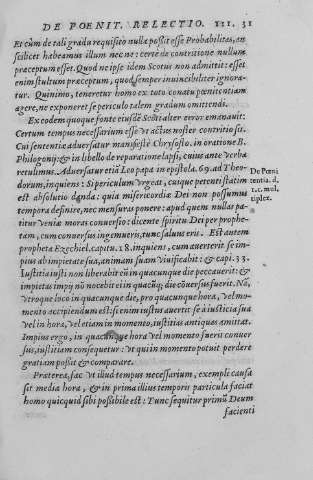 DE POENIT. RELECTIO. III. 31
Et cùm de tali gradu requisito nulla possit esse Probabilitas, an
scilicet habeamus illum nec ne: certè de contritione nullum
præceptum esset. Quod ne ipse idem Scotus non admittit: esset
enim stultum præceptum, quod semper inuincibiliter ignora-
tur. Quinimo, teneretur homo ex toto conatu pœnitentiam
agere, ne exponeret se periculo talem gradum omittendi.
Ex eodem quoque fonte eiusdē Scoti alter error emanauit:
Certum tempus necessarium esse vt actus noster contritio sit.
Cui sententiæ aduersatur manifestè Chrysosto. in oratione B.
Philogonij: & in libello de reparatione lapsi, cuius ante verba
retulimus. Aduersatur etiā Leo papa in epistola. 69. ad Theo-
dorum, inquiens: Si periculum vrgeat, cuique petenti statim
est absolutio dāda: quia misericordia Dei non possumus
tempora definire, nec mensuras ponere: apud quem nullas pa-
titur veniæ moras conuersio: dicente spiritu Dei per prophe-
tam, cum conuersus ingemueris, tunc saluus eris. Est autem
propheta Ezechiel, capitu. 18. inquiens, cum auerterit se im-
pius ab impietate sua, animam suam viuificabit: & capi. 33.
Iustitia iusti non liberabit eū in quacunque die peccauerit: &
impietas impij nō nocebit ei in quacūq; die cōuersus fuerit. Nō,
vtroque loco in quacunque die, pro quacunque hora, vel mo-
mento accipiendum est: si enim iustus auertit se à iusticia sua
vel in hora, vel etiam in momento, iustitias antiquas amittat.
Impius ergo, in quacunque hora vel momento fuerit conuer
sus, iustitiam consequetur: vt qui in momento potuit perdere
gratiam possit & comparare.
Præterea, fac vt illud tempus necessarium, exempli causa
sit media hora, & in prima illius temporis particula faciat
homo quicquid sibi possibile est: Tunc sequitur primū Deum
facienti
De Pœni
tentia. d.
1. c. mul
tiplex.